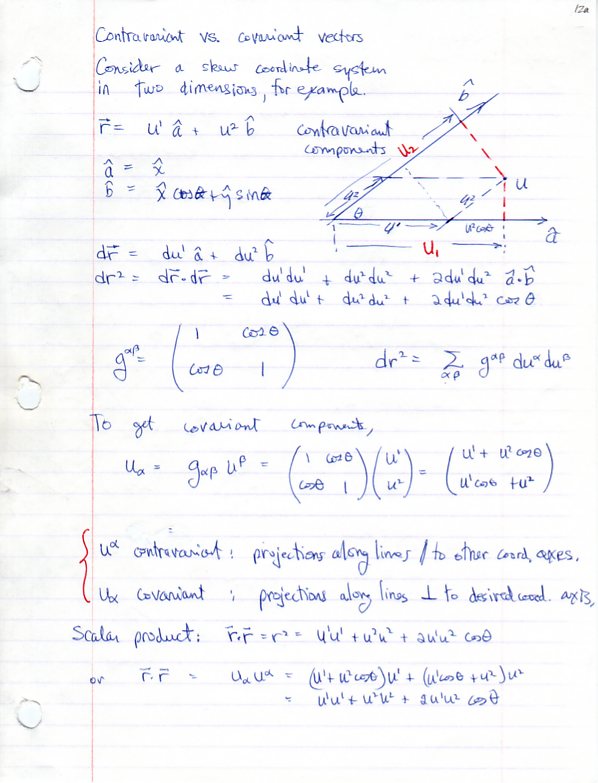 12a
Contravariant vs. covariant vectors
Consider a skew coordinate system
in two dimensions, for example.
r⃗ = u¹ â + u² b̂ contravariant
components
â = x̂
b̂ = x̂ cosθ + ŷ sinθ
b̂
u₂
u²
u
u²
θ
u¹
u²cosθ
â
u₁
dr⃗ = du¹ â + du² b̂
dr² = dr⃗·dr⃗ = du¹du¹ + du²du² + 2du¹du² a⃗·b̂
= du¹du¹ + du²du² + 2du¹du² cosθ
g^αβ = ( 1 cosθ
cosθ 1 ) dr² = Σ_αβ g^αβ du^α du^β
To get covariant components,
u_α = g_αβ u^β = ( 1 cosθ ) ( u¹ ) = ( u¹ + u² cosθ )
( cosθ 1 ) ( u² ) ( u¹cosθ + u² )
{ u^α contravariant : projections along lines // to other coord. axes.
u_α covariant : projections along lines ⊥ to desired coord. axis,
Scalar product: r⃗·r⃗ = r² = u¹u¹ + u²u² + 2u¹u² cosθ
or r⃗·r⃗ = u_α u^α = (u¹+u²cosθ)u¹ + (u¹cosθ+u²)u²
= u¹u¹ + u²u² + 2u¹u² cosθ